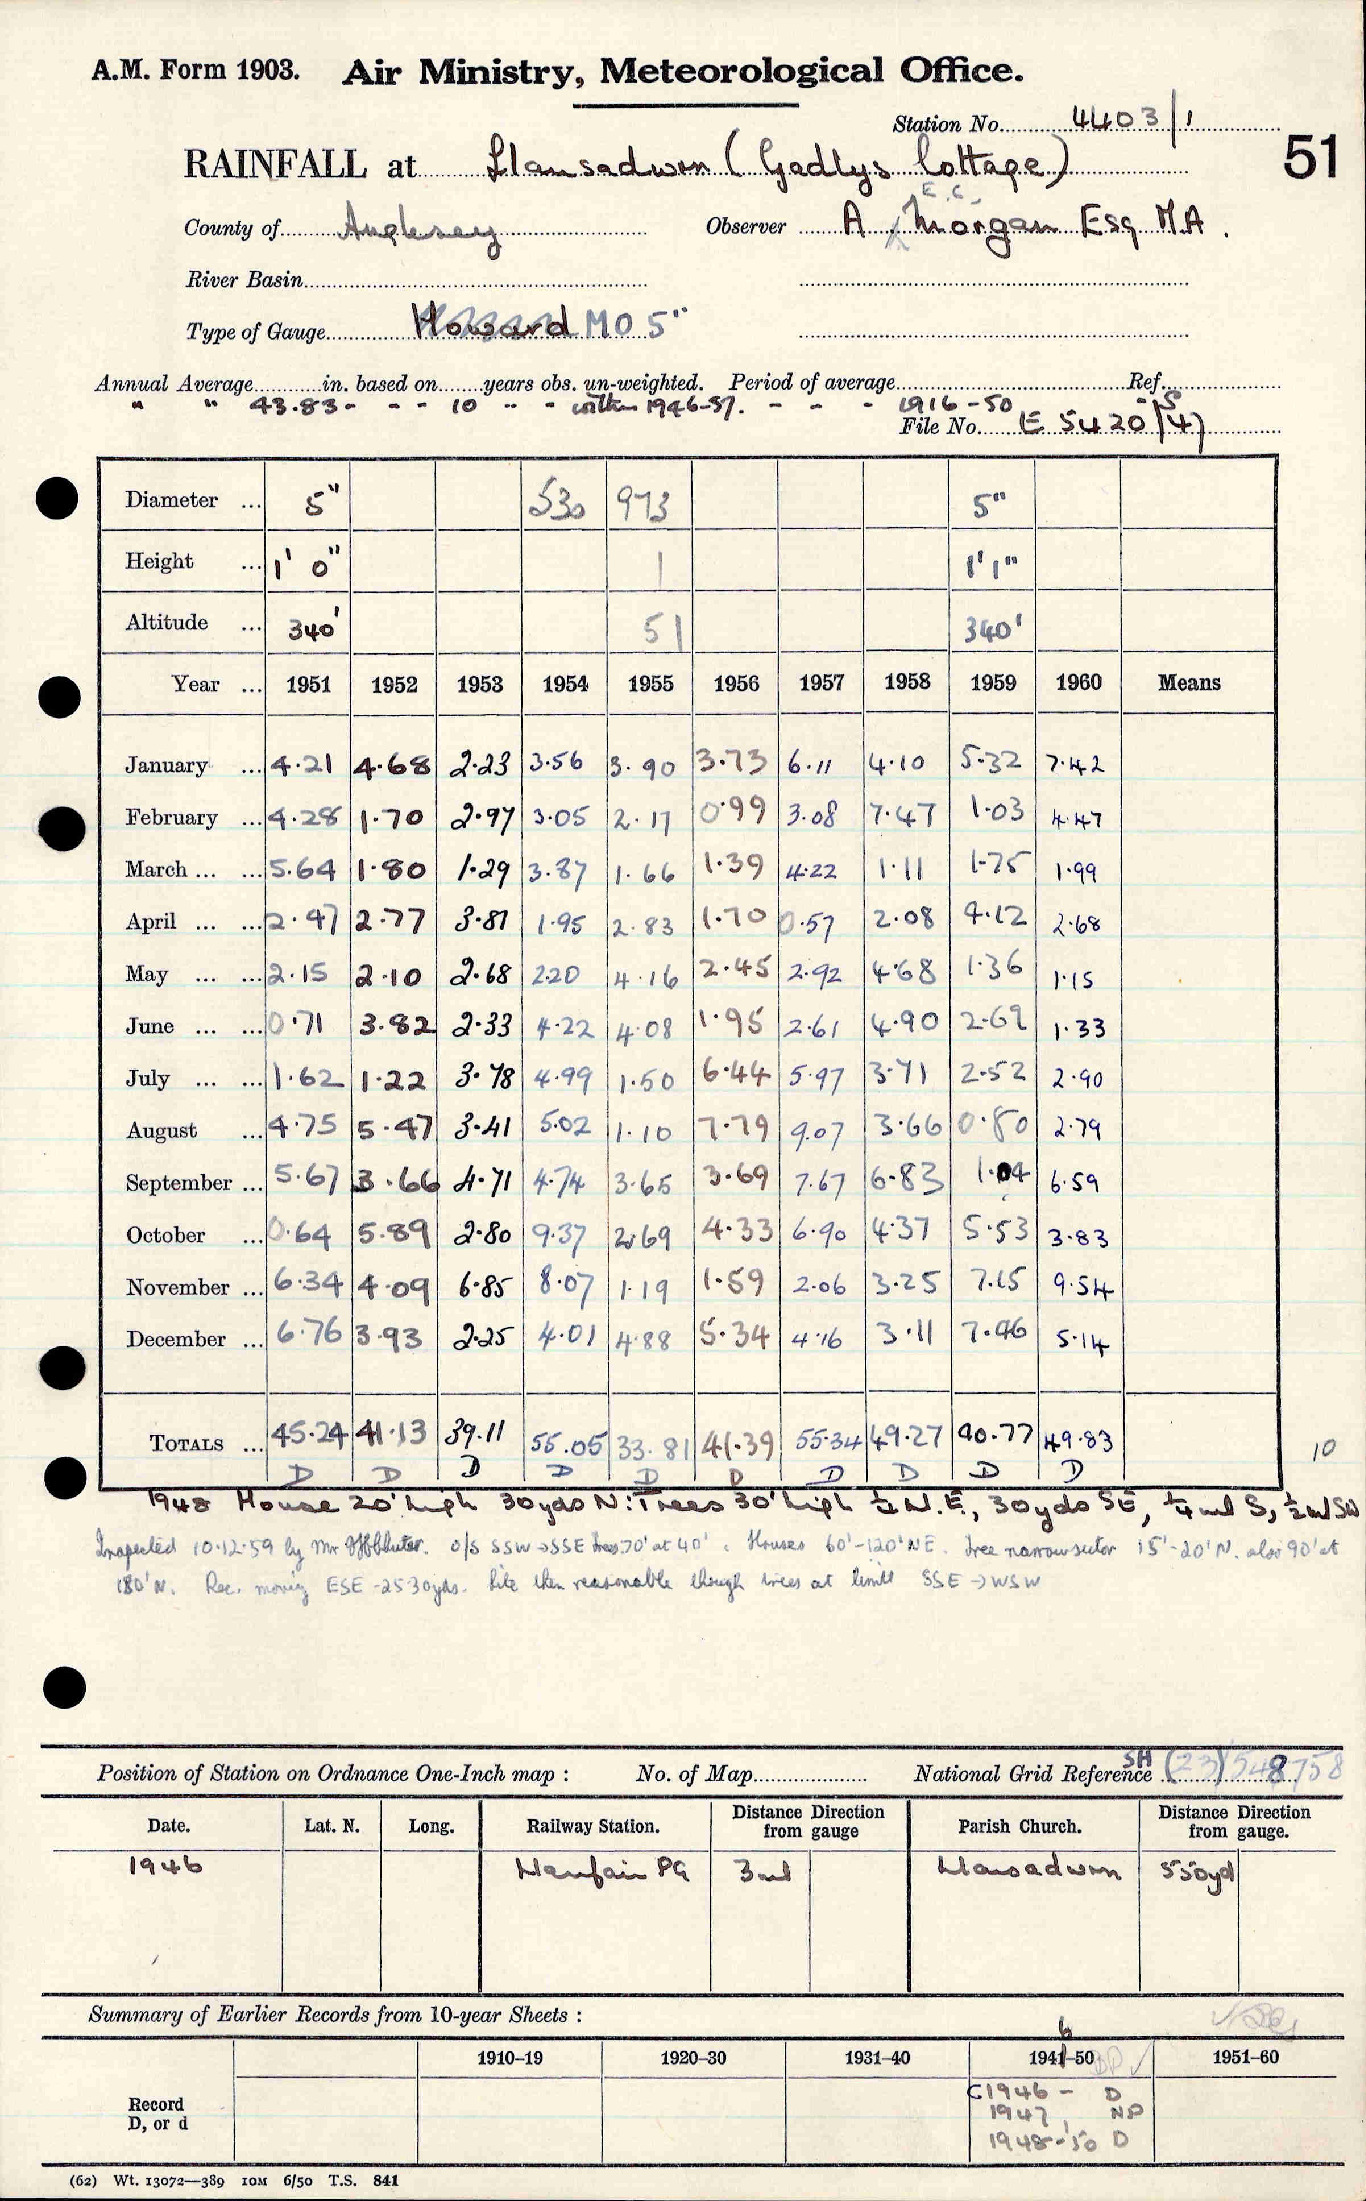 A.M. Form 1903. Air Ministry, Meteorological Office.
Station No. 4403/1
51
RAINFALL at Llansadwrn (Gadlys Cottage)
County of Anglesey Observer A E.C. Morgan Esq MA.
River Basin
Type of Gauge Howard MO 5"
Annual Average in. based on years obs. un-weighted. Period of average Ref.
" " 43.83 - - - 10 - - - within 1946-57. - - - 1916-50
File No. E 5420/S/47
Diameter ... 5" 530 973 5"
Height ... 1' 0" 1 1'1"
Altitude ... 340' 51 340'
Year ... 1951 1952 1953 1954 1955 1956 1957 1958 1959 1960 Means
January ... 4.21 4.68 2.23 3.56 3.90 3.73 6.11 4.10 5.32 7.42
February ... 4.28 1.70 2.97 3.05 2.17 0.99 3.08 7.47 1.03 4.47
March ... ... 5.64 1.80 1.29 3.87 1.66 1.39 4.22 1.11 1.75 1.99
April ... ... 2.47 2.77 3.81 1.95 2.83 1.70 0.57 2.08 4.12 2.68
May ... ... 2.15 2.10 2.68 2.20 4.16 2.45 2.92 4.68 1.36 1.15
June ... ... 0.71 3.82 2.33 4.22 4.08 1.95 2.61 4.90 2.69 1.33
July ... ... 1.62 1.22 3.78 4.99 1.50 6.44 5.97 3.71 2.52 2.90
August ... 4.75 5.47 3.41 5.02 1.10 7.79 9.07 3.66 0.80 2.79
September ... 5.67 3.66 4.71 4.74 3.65 3.69 7.67 6.83 1.04 6.59
October ... 0.64 5.89 2.80 9.37 2.69 4.33 6.90 4.37 5.53 3.83
November ... 6.34 4.09 6.85 8.07 1.19 1.59 2.06 3.25 7.15 9.54
December ... 6.76 3.93 2.25 4.01 4.88 5.34 4.16 3.11 7.46 5.14
TOTALS ... 45.24 41.13 39.11 55.05 33.81 41.39 55.34 49.27 40.77 49.83
10
D D D D D D D D D D
1948 House 20' high 30yds N: Trees 30' high N.E, 30yds SE, ¼ ml S, ½ ml SW
Inspected 10.12.59 by Mr O/S SSW → SSE trees 70' at 40'. Houses 60'-120' NE. Tree narrow sector 15'-20' N. also 90' at
180' N. Rec. moving ESE - 25 30yds. Site then reasonable though trees at limit SSE → WSW
Position of Station on Ordnance One-Inch map : No. of Map National Grid Reference SH (23) 548758
Date. Lat. N. Long. Railway Station. Distance Direction from gauge Parish Church. Distance Direction from gauge.
1946 Llanfair PG 3 ml Llansadwrn 550yd
Summary of Earlier Records from 10-year Sheets :
6
1910–19 1920–30 1931–40 1941–50 1951–60
Record
D, or d
C1946 - D
1947, NP
1948-50 D
(62) Wt. 13072—389 10M 6/50 T.S. 841